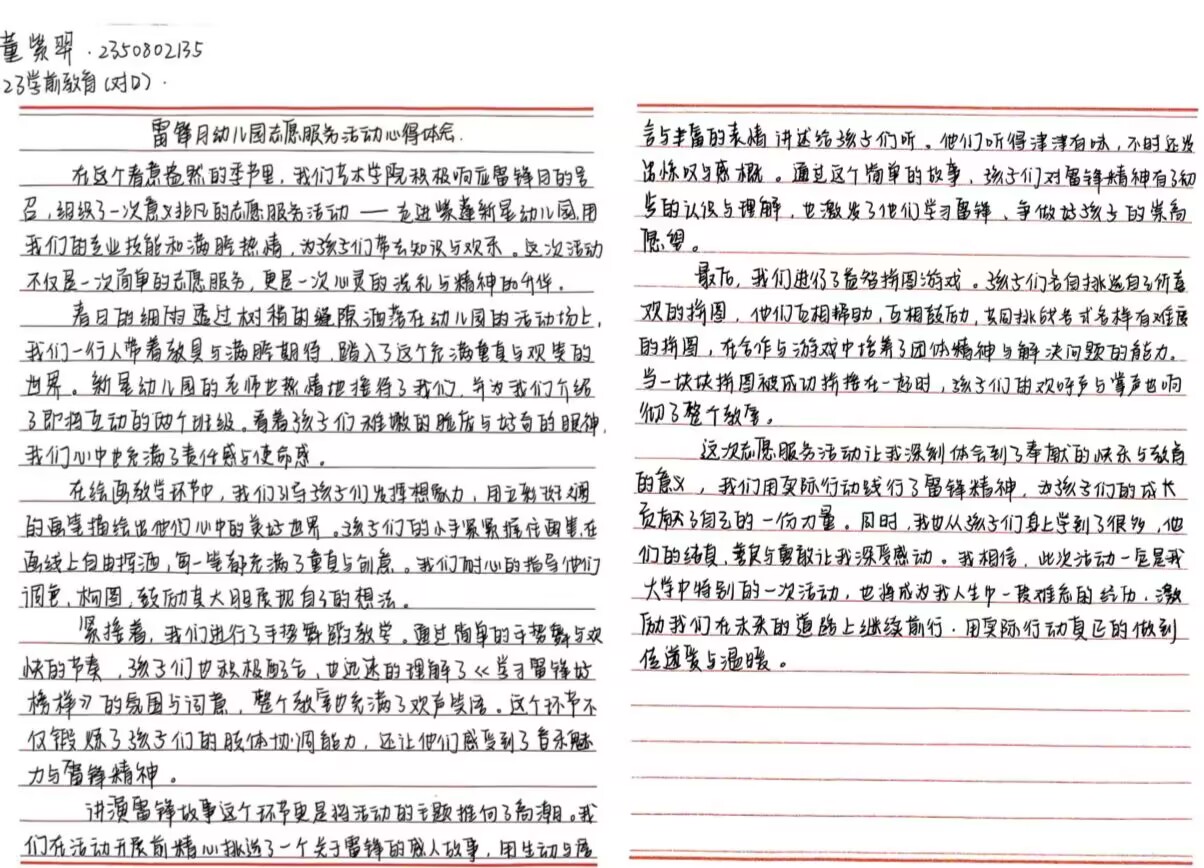 董紫羿.2350802135
23学前教育(对口).
雷锋月幼儿园志愿服务活动心得体会.
在这个春意盎然的季节里，我们艺术学院积极响应雷锋月的号
召，组织了一次意义非凡的志愿服务活动——走进紫薇新星幼儿园,用
我们的专业技能和满腔热情，为孩子们带去知识与欢乐。这次活动
不仅是一次简单的志愿服务，更是一次心灵的洗礼与精神的升华。
春日的细雨透过树梢的缝隙洒落在幼儿园的活动场上，
我们一行人带着教具与满腔期待，踏入了这个充满童真与欢笑的
世界。新星幼儿园的老师也热情地接待了我们，并为我们介绍
了即将互动的两个班级。看着孩子们稚嫩的脸庞与好奇的眼神，
我们心中也充满了责任感与使命感。
在绘画教学环节中，我们引导孩子们发挥想象力，用五彩斑斓
的画笔描绘出他们心中的美好世界。孩子们的小手紧紧握住画笔,在
画纸上自由挥洒，每一笔都充满了童真与创意。我们耐心的指导他们
调色、构图，鼓励其大胆展现自己的想法。
紧接着，我们进行了手势舞蹈教学。通过简单的手势舞与欢
快的节奏，孩子们也积极配合，也迅速的理解了《学习雷锋好
榜样》的氛围与词意，整个教室也充满了欢声笑语。这个环节不
仅锻炼了孩子们的肢体协调能力，还让他们感受到了音乐魅
力与雷锋精神。
讲演雷锋故事这个环节更是将活动的主题推向了高潮。我
们在活动开展前精心挑选了一个关于雷锋的感人故事，用生动与语
言与丰富的表情讲述给孩子们听。他们听得津津有味，不时还发
出惊叹与感概。通过这个简单的故事，孩子们对雷锋精神有了初
步的认识与理解，也激发了他们学习雷锋、争做好孩子的崇高
愿望。
最后，我们进行了益智拼图游戏。孩子们各自挑选自己所喜
欢的拼图，他们互相帮助，互相鼓励，共同挑战各式各样有难度
的拼图，在合作与游戏中培养了团体精神与解决问题的能力。
当一块块拼图被成功拼接在一起时，孩子们的欢呼声与掌声也响
彻了整个教室。
这次志愿服务活动让我深刻体会到了奉献的快乐与教育
的意义，我们用实际行动践行了雷锋精神，为孩子们的成长
贡献了自己的一份力量。同时，我也从孩子们身上学到了很多，他
们的纯真、善良与勇敢让我深受感动。我相信，此次活动一定是我
大学中特别的一次活动，也将成为我人生中一段难忘的经历，激
励我们在未来的道路上继续前行，用实际行动真正的做到
传递爱与温暖。